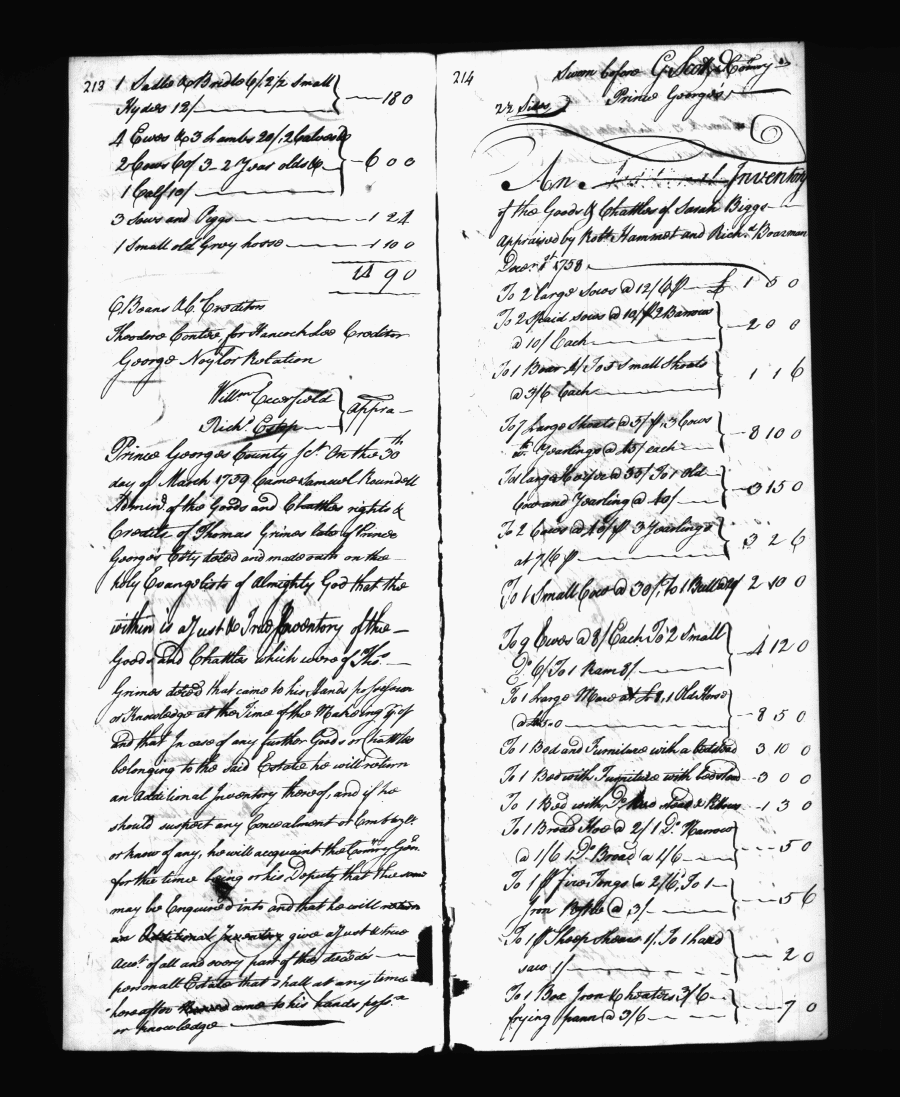 213
1 Sadle & Bridle 6/. 2/2 Small
Hydes 12/ 18 0
4 Ewes & 3 Lambs 20/. 2 Calves
2 Cows 60/ 3-2 Year olds &
1 Calf 10/ 6 0 0
3 Sows and Piggs 1 2 4
1 Small old Grey horse 1 10 0
14 9 0
Creditors
Theodore Contee for Hancock Lee Creditor
George Naylor Relation
Willm
Richd Estep
Appra
Prince Georges County Sct. On the 30th
day of March 1759 Came Samuel Roundell
Admr. of the Goods and Chattles rights &
Credits of Thomas Grimes late of Prince
Georges Cty deced and made oath on the
holy Evangelists of Almighty God that the
within is a Just & True Inventory of the
Goods and Chattles which were of Thos.
Grimes deced that came to his Hands possession
or Knowledge at the Time of the Making
and that In case of any further Goods or Chattles
belonging to the said Estate he will return
an Additional Inventory thereof, and if he
should suspect any Concealment or Embezlt
or know of any, he will acquaint the Comry Genl.
for the time being or his Deputy that the same
may be Enquired into and that he will return
an Additional Inventory give a Just & true
Acct. of all and every part of the deceds
personall Estate that shall at any time
hereafter come to his hands possn
or knowledge
214
Sworn before G Scott D Comry
Prince Georges
22 Sides
An Inventory
of the Goods & Chattles of Sarah Biggs
Appraised by Robt. Hammet and Richd. Boarman
Decer. 1st 1758
To 2 large Sows @ 12/6 P £ 1 5 0
To 2 Spaid sows @ 10/ P 2 Barrows
@ 10/ Each 2 0 0
To 1 Boar 4/ To 5 Small Shoats
@ 3/6 Each 1 1 6
To 7 Large Shoats @ 5/ P, 3 Cows
wth. Yearlings @ 45/ each 8 10 0
To 1 large Heifer @ 35/ To 1 old
Cow and Yearling @ 40/ 3 15 0
To 2 Cows @ 40/ P 3 Yearlings
at 7/6 P 3 2 6
To 1 Small Cow @ 30/, to 1 Bull 2 10 0
To 9 Ewes @ 8/ Each To 2 Small
Do. 6/ To 1 Ram 8/ 4 12 0
To 1 Large Mare 1 Old Horse
8 5 0
To 1 Bed and Furniture with a Bedstead 3 10 0
To 1 Bed with Furniture with Bedstead 3 0 0
To 1 Bed with Do. 1 3 0
To 1 Broad Hoe @ 2/ 1 Do. Narrow
@ 1/6 1 Do. Broad @ 1/6 5 0
To 1 P Fire Tongs @ 2/6, To 1
Iron Kettle @ 3/ 5 6
To 1 P Sheep Shears 1/. To 1 hand
saw 1/ 2 0
To 1 Box Iron & heaters 3/6
frying pann @ 3/6 7 0